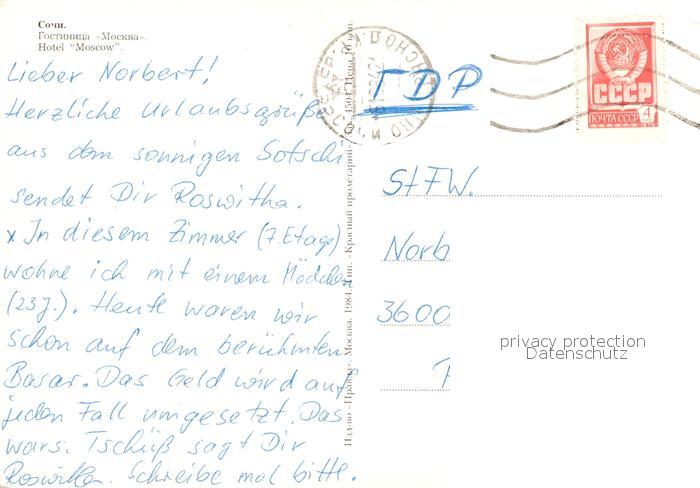 Сочи.
Гостиница «Москва».
Hotel "Moscow".
Lieber Norbert!
Herzliche Urlaubsgrüße
aus dem sonnigen Sotschi
sendet Dir Roswitha.
x In diesem Zimmer (7 Etage)
wohne ich mit einem Mädchen
(23 J.). Heute waren wir
schon auf dem berühmten
Basar. Das Geld wird auf
jeden Fall umgesetzt. Das
wars. Tschüß sagt Dir
Roswitha. Schreibe mal bitte.
Изд-во «Правда». Москва. 1984. Тип. «Красный пролетарий».
Цена
ГДР
СССР
ПОЧТА СССР
4
StFW.
Norb
3600
privacy protection
Datenschutz